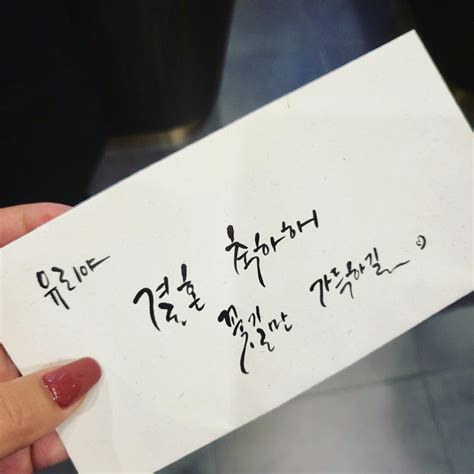 유리야
결혼 축하해
꽃길만 가득하길